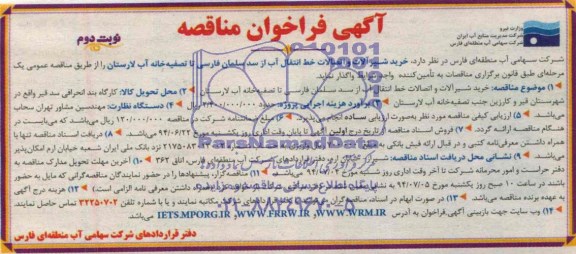 وزارت نیرو
شرکت مدیریت منابع آب ایران
شرکت سهامی آب منطقه‌ای فارس
آگهی فراخوان مناقصه
نوبت دوم
شرکت سهامی آب منطقه‌ای فارس در نظر دارد، خرید شیرآلات و اتصالات خط انتقال آب از سد سلمان فارسی تا تصفیه‌خانه آب لارستان را از طریق مناقصه عمومی یک
مرحله‌ای طبق قانون برگزاری مناقصات به تأمین‌کننده واجد شرایط واگذار نماید.
۱) موضوع مناقصه: خرید شیرآلات و اتصالات خط انتقال آب از سد سلمان فارسی تا تصفیه‌خانه آب لارستان ۲) محل تحویل کالا: کارگاه بند انحرافی سد قیر واقع در
شهرستان قیر و کارزین جنب تصفیه‌خانه آب لارستان ۳) برآورد هزینه اجرایی پروژه: حدود ریال ۴) دستگاه نظارت: مهندسین مشاور تهران سحاب
۵) ارزیابی کیفی مناقصه مورد نظر به‌صورت ارزیابی ساده انجام می‌پذیرد ۶) مبلغ ضمانتنامه شرکت در مناقصه ۱۲۰/۰۰۰/۰۰۰ ریال می‌باشد که می‌بایست در
هنگام مناقصه ارائه گردد. ۷) فروش اسناد مناقصه از تاریخ درج اولین آگهی تا پایان وقت اداری روز یکشنبه مورخ ۹۴/۰۶/۲۲ می‌باشد. ۸) دریافت اسناد مناقصه تنها با
در دست داشتن معرفی‌نامه کتبی و در قبال فیش بانکی به مبلغ نزد بانک ملی ایران شعبه خیابان ارم امکان‌پذیر
می‌باشد. ۹) نشانی محل دریافت اسناد مناقصه: شیراز دفتر قراردادهای شرکت آب منطقه‌ای فارس، اتاق ۳۶۲ ۱۰) آخرین مهلت تحویل مدارک مناقصه به
دفتر حراست و امور محرمانه شرکت تا آخر وقت اداری روز شنبه مورخ می‌باشد. ۱۱) مناقصه‌گزار، پیشنهادها را در حضور نمایندگان مناقصه‌گرانی که مایل به حضور
باشند در ساعت ۱۰ صبح روز یکشنبه مورخ ۹۴/۰۷/۰۵ باز خواهد نمود (همراه داشتن معرفی نامه الزامی است) ۱۲) هزینه درج آگهی
به عهده برنده مناقصه می‌باشد. ۱۳) در صورت ابهام در اسناد، مناقصه‌گران با دفتر قراردادهای شرکت مکاتبه نمایند و یا با شماره تلفن ۳۲۲۵۰۷۰۲ تماس حاصل نمایند.
۱۴) وب سایت جهت بازبینی آگهی فراخوان به آدرس WWW.WRM.IR و WWW.FRRW.IR و IETS.MPORG.IR می‌باشد.
دفتر قراردادهای شرکت سهامی آب منطقه‌ای فارس
ParsNamadData
پایگاه اطلاع رسانی مناقصات و مزایدات
۰۲۱-۸۸۳۴۹۶۷۰-۵